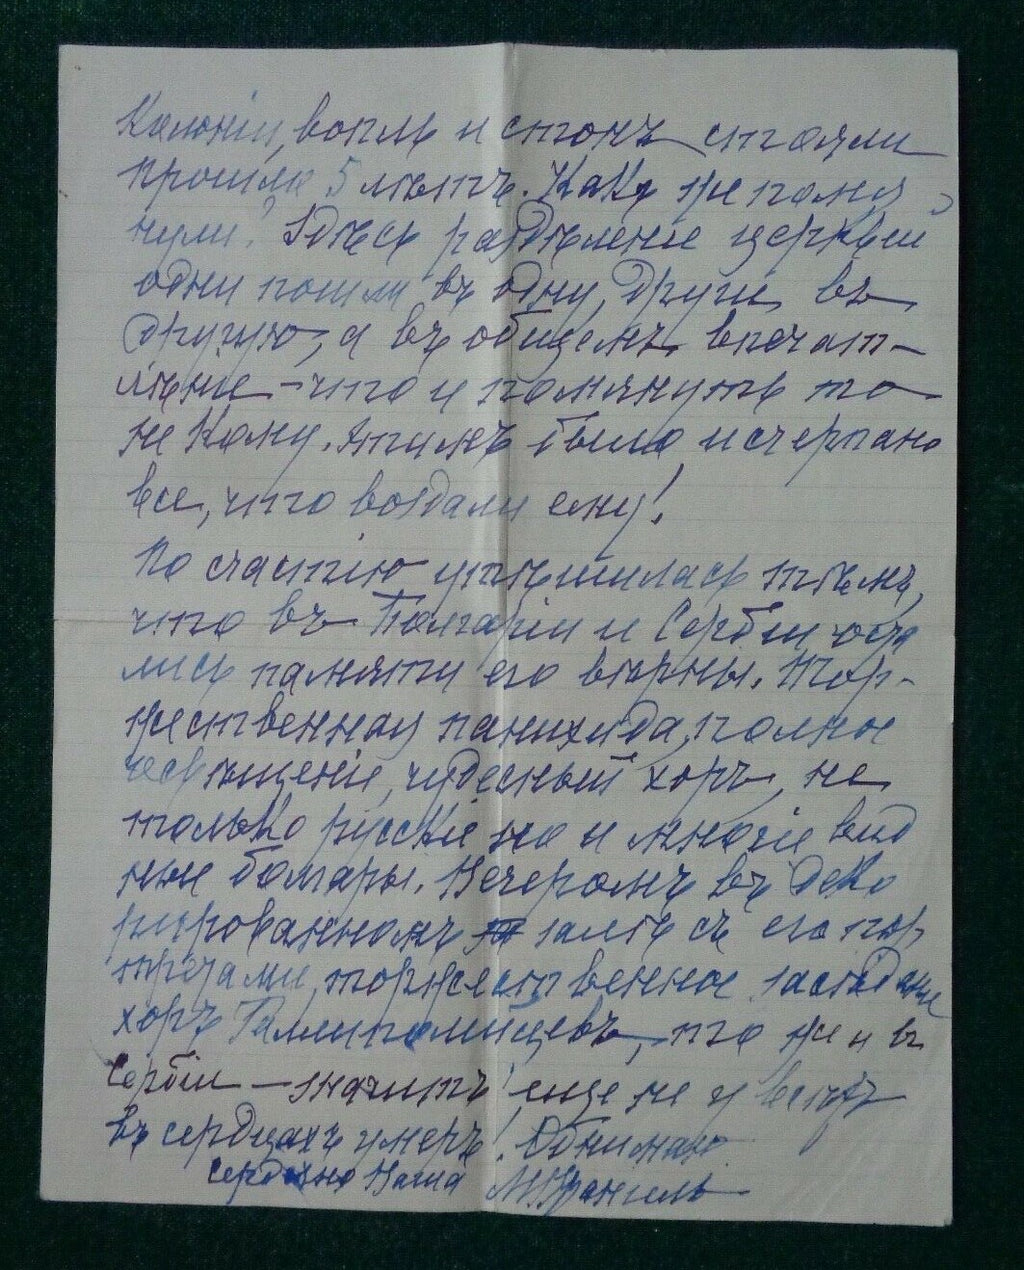 Колоніи, вопль и стонъ стояли
прошло 5 лѣтъ. Какъ же помя
нули? Здѣсь раздѣленіе церквей
одни пошли въ одну, други въ
другую, а въ общемъ впечат-
лѣніе – что и помянуть то
не кому. Этимъ было исчерпано
все, что воздали ему!
По счастію утѣшилась тѣмъ,
что въ Болгаріи и Сербіи оста
лись памяти его вѣрны. Тор-
жественная панихида, полное
освѣщеніе, чудесный хоръ, не
только русскіе но и многіе вид
ные болгары. Вечеромъ въ деко
рированномъ залѣ съ его пор
третами, торжественное засѣданіе
хоръ Галлиполійцевъ, то же и въ
Сербіи – значитъ еще не у всѣхъ
въ сердцахъ умеръ! Обнимаю
сердечно Ваша М. Врангель